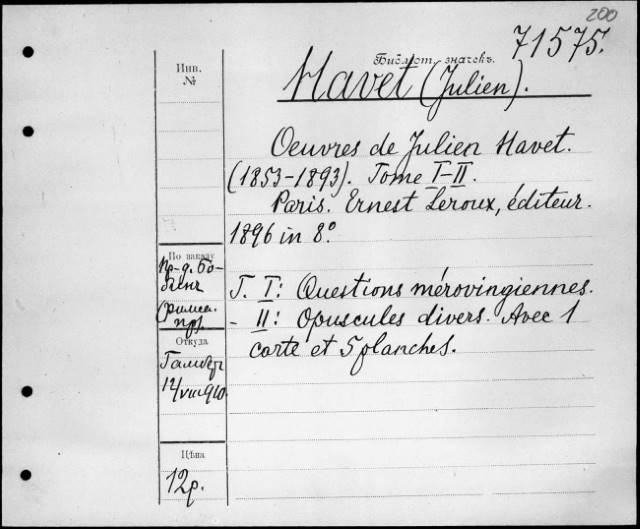 200
71575.
Библiот. значекъ.
Инв.
№
Havet (Julien).
Oeuvres de Julien Havet.
(1853-1893). Tome I-II.
Paris. Ernest Leroux, éditeur.
1896 in 8°.
По заказу
T. I: Questions mérovingiennes.
- II: Opuscules divers. Avec 1
carte et 5 planches.
Откуда
12/VIII 910.
Цѣна
12р.